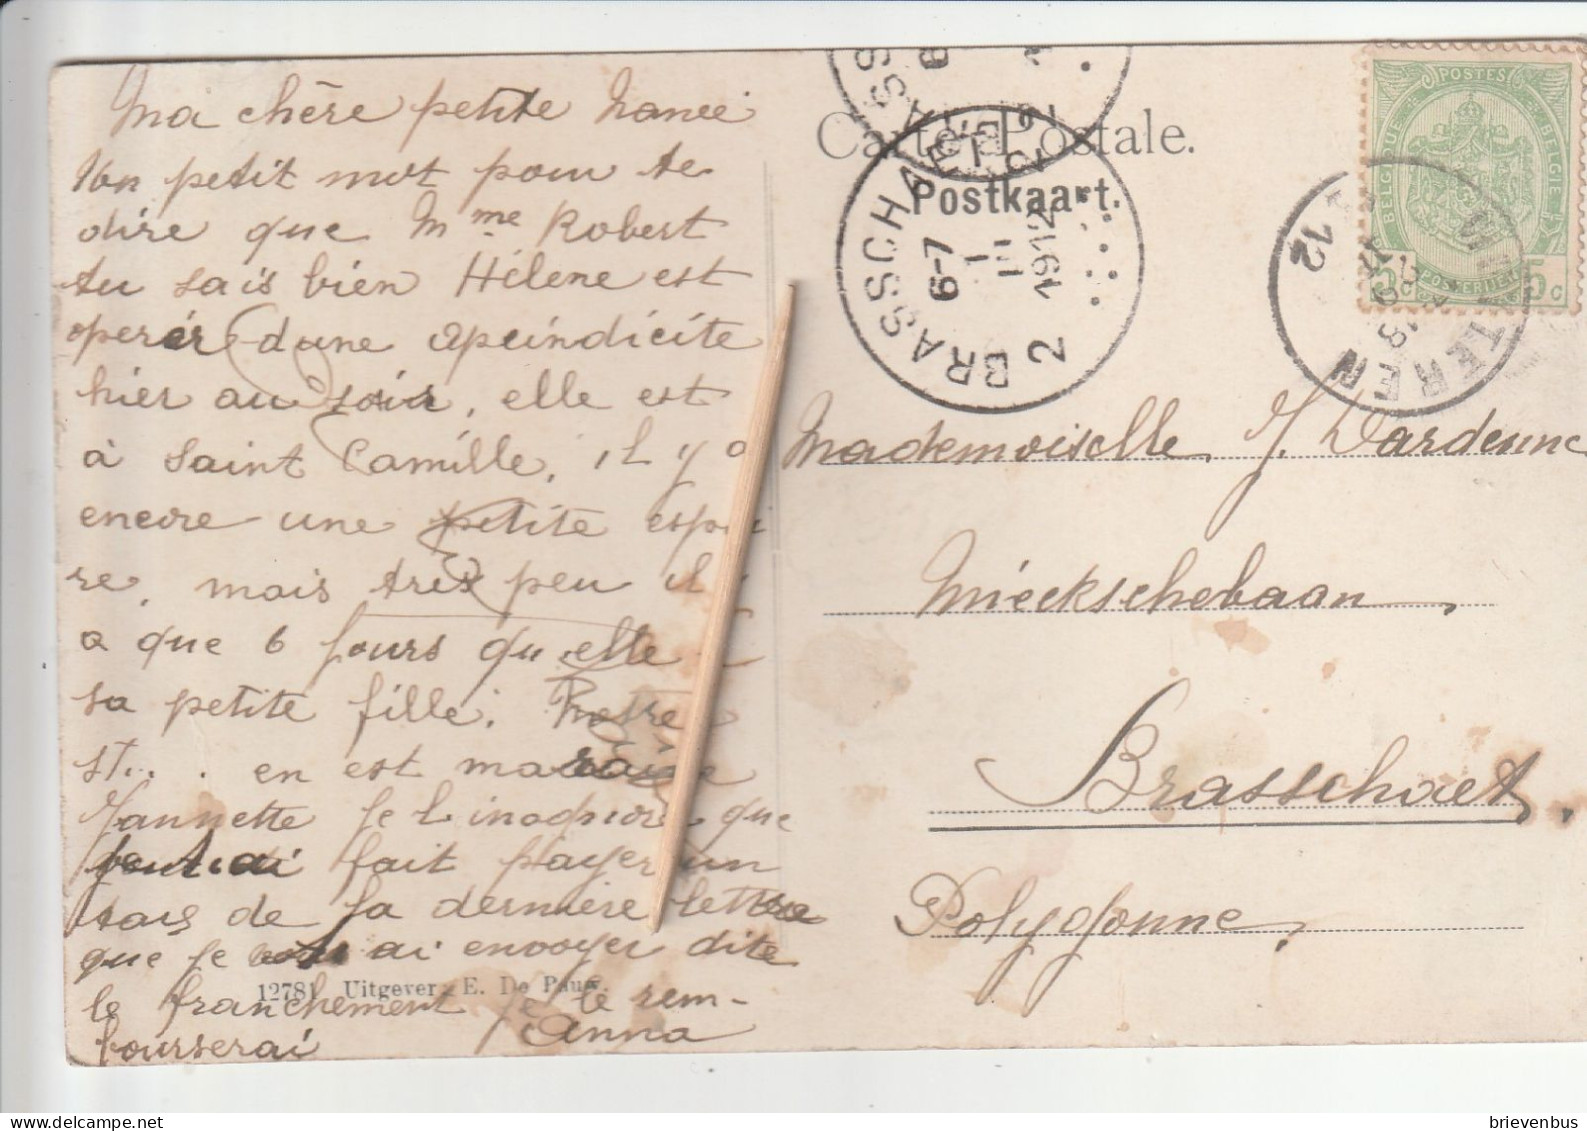 Ma chère petite Nanei
Un petit mot pour te
dire que Mme Robert
tu sais bien Hélene est
operér dune apeindicite
hier au soir, elle est
à Saint Camille, il y a
encore une petite espoi
re, mais très peu il
a que 6 jours qu'elle
sa petite fille.
st... en est
Jannette je que
fait payer un
de la dernière lettre
que je ai envoyer dite
le franchement je le rem-
bourserai Anna
12781 Uitgever E. De Pauw.
Carte Postale.
Postkaart.
BRASSCHAET
6-7
1
III
1912
2 2
BRASSCHAET
12
POSTES
BELGIQUE
BELGIE
POSTERIJEN
5c 5c
Mademoiselle J. Dardenne
Mieckschebaan,
Brasschaet,
Polygonne,
brievenbus
delcampe.net